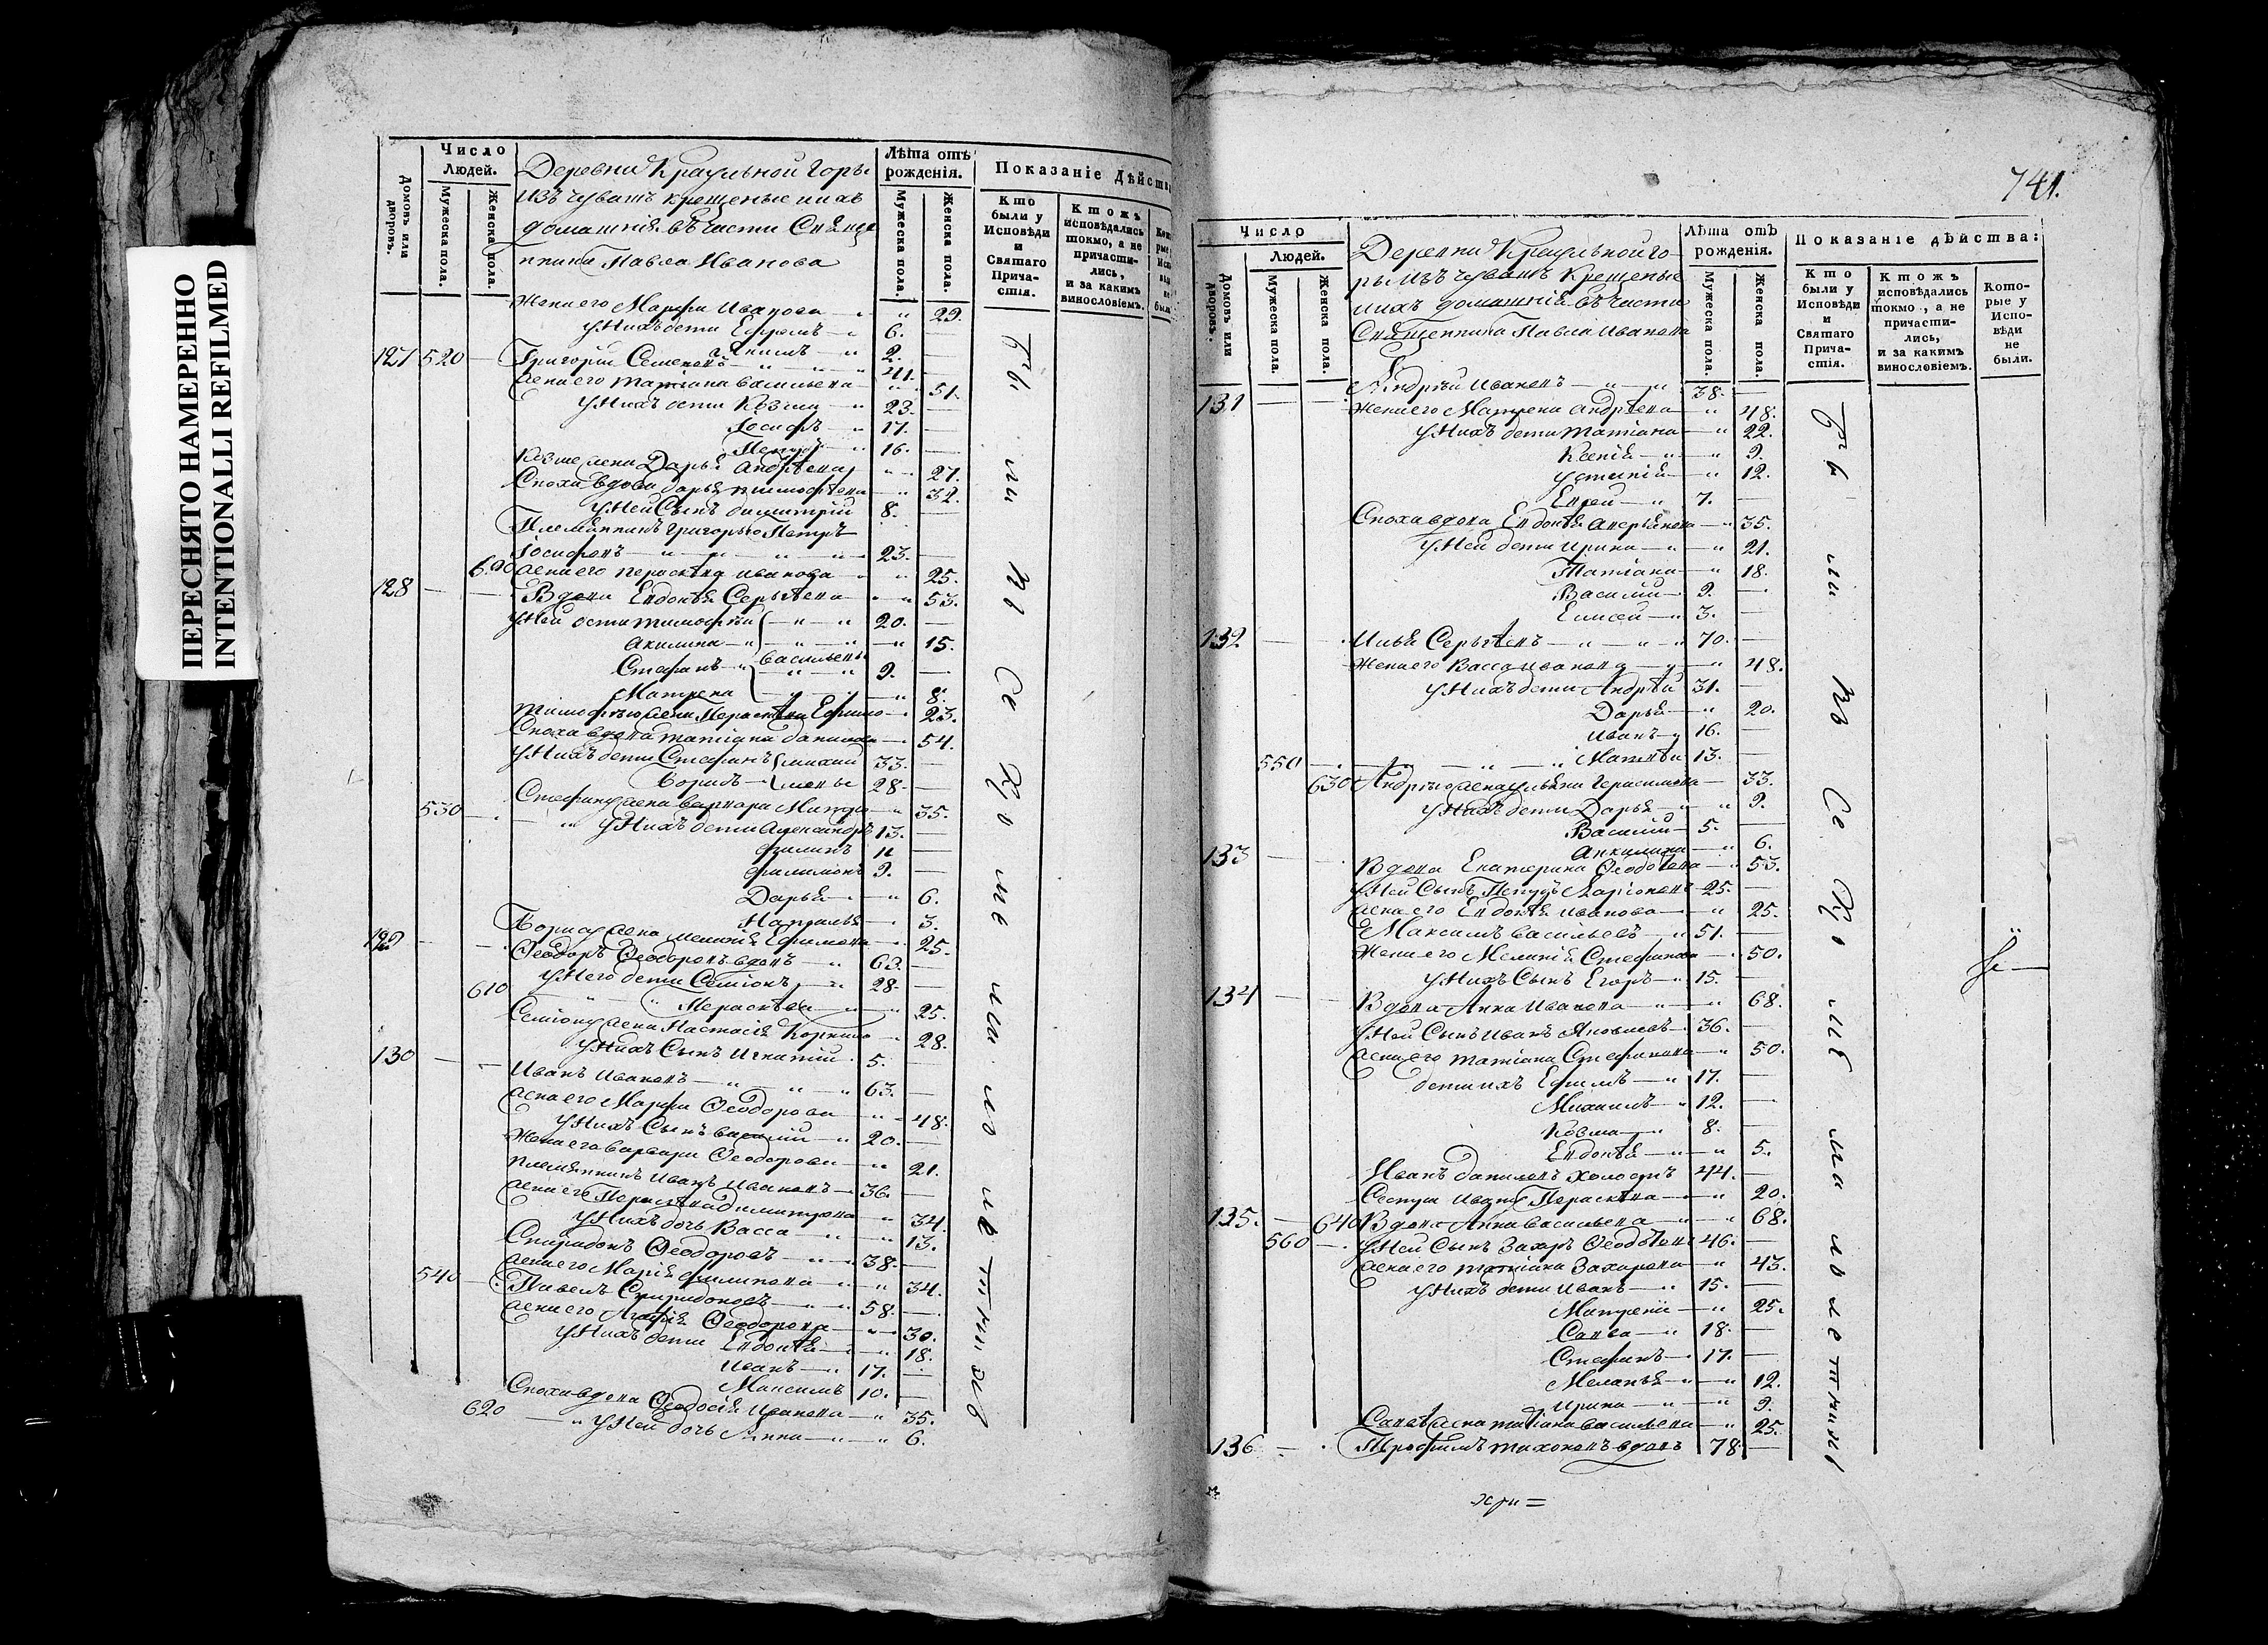 ПЕРЕСНЯТО НАМЕРЕННО
INTENTIONALLI REFILMED
Число
Людей.
Домовъ или дворовъ.
Мужеска пола.
Женска пола.
Деревни Краульной Горы
изъ чувашъ крещеные и ихъ
домашнія въ части Священ
нника Павла Иванова
Лѣта отъ
рожденія.
Мужеска пола.
Женска пола.
Показаніе Дѣйств
Кто
были у
Исповѣди
и
Святаго
Прича-
стія.
Ктожъ
исповѣдались
токмо, а не
причасти-
лись,
и за какимъ
винословіемъ.
Жена его Марфа Иванова 29.
У Нихъ дети Ефремъ 6.
Якимъ 2.
127 520 Григорій Семеновъ 41.
Жена его Татіана Васильева 51.
У Нихъ дети Козма 23.
Іосифъ 17.
Петръ 16.
Козме жена Дарья Андрѣева 27.
Сноха вдова Дарья Тимофѣева 32.
У Ней Сынъ Димитрій 8.
Племянникъ Григорью Петръ
Іосифовъ 23.
6.00 Жена его Пераскѣва Иванова 25.
128 Вдова Евдокѣя Сергѣева 53.
У Ней дети Тимофѣй 20.
Акилина 15.
Стефанъ Васильевы 9.
Матрена 8.
Тимофѣю жена Пераскѣва Ефимо 23.
Сноха вдова Татіана Данилова 54.
У Нихъ дети Стефанъ 33.
Борисъ 28.
Стефану жена Варвара Митро 35.
530 У Нихъ дети Александръ 13.
Филипъ 11
Филимонъ 9.
Дарья 6.
Наталья 3.
Борису жена Меланія Ефимова 25.
129 Ѳеодоръ Ѳеодоровъ вдовъ 63.
У Него дети Семіонъ 28.
610 Пераскѣва 25.
Семіону жена Настасія Корнило 28.
У Нихъ Сынъ Игнатій 5.
130 Иванъ Ивановъ 63.
Жена его Марфа Ѳеодорова 48.
У Нихъ Сынъ Василій 20.
Жена его Варвара Ѳеодорова 21.
Племянникъ Иванъ Ивановъ 36.
Жена его Пераскѣва Димитрева 34.
У Нихъ дочь Васса 13.
Спиридонъ Ѳеодоровъ 38.
Жена его Марія Филипова 34.
540 Павелъ Спиридоновъ 58.
Жена его Агафія Ѳеодорова 30.
У Нихъ дети Евдокѣя 18.
Иванъ 17.
Максимъ 10.
Сноха вдова Ѳеодосія Иванова 35.
620 У Ней дочь Анна 6.
Бы
ли
741.
Число
Людей.
Домовъ или дворовъ.
Мужеска пола.
Женска пола.
Деревни Краульной Го-
ры изъ чувашъ Крещеные
и ихъ домашнія въ части
Священника Павла Иванова
Лѣта отъ
рожденія.
Мужеска пола.
Женска пола.
Показаніе дѣйства:
Кто
были у
Исповѣди
и
Святаго
Прича-
стія.
Ктожъ
исповѣдались
токмо, а не
причасти-
лись,
и за какимъ
винословіемъ.
Кото-
рые у
Испо-
вѣди
не
были.
131 Андрѣй Ивановъ 38.
Жена его Матрена Андрѣева 48.
У Нихъ дети Татіана 22.
Ксенія 9.
Устинія 12.
7.
Сноха вдова Евдокѣя 35.
У Ней дети Ирина 21.
Татіана 18.
Василій 9.
Елисей 3.
132 Илья Сергѣевъ 70.
Жена его Васса Иванова 48.
У Нихъ дети Андрѣй 31.
Дарья 20.
Иванъ 16.
550 Матвѣй 13.
630 Андрѣю жена Ульяна Герасимова 33.
У Нихъ дети Дарья 9.
Василій 5.
Акилина 6.
133 Вдова Екатерина Ѳеодотова 53.
У Ней Сынъ Петръ Ларіоновъ 25.
Жена его Евдокѣя Иванова 25.
Максимъ Васильевъ 51.
Жена его Меланія Стефанова 50.
У Нихъ Сынъ Егоръ 15.
134 Вдова Анна Иванова 68.
У Ней Сынъ Иванъ Яковлевъ 36.
Жена его Татіана Стефанова 50.
дети ихъ Ефимъ 17.
Михаилъ 12.
Козма 8.
Евдокѣя 5.
Иванъ Даниловъ холостъ 44.
Сестра Ивану Пераскѣва 20.
135. 640 Вдова Анна Васильева 68.
560 У Ней Сынъ Захаръ Ѳеодотовъ 46.
Жена его Татіана Захарова 43.
У Нихъ дети Иванъ 15.
Матрена 25.
Савва 18.
Стефанъ 17.
Меланья 12.
Ирина 9.
Савве жена Татіана Васильева 25.
136 Трофимъ Тихоновъ вдовъ 78.
Бы
ли